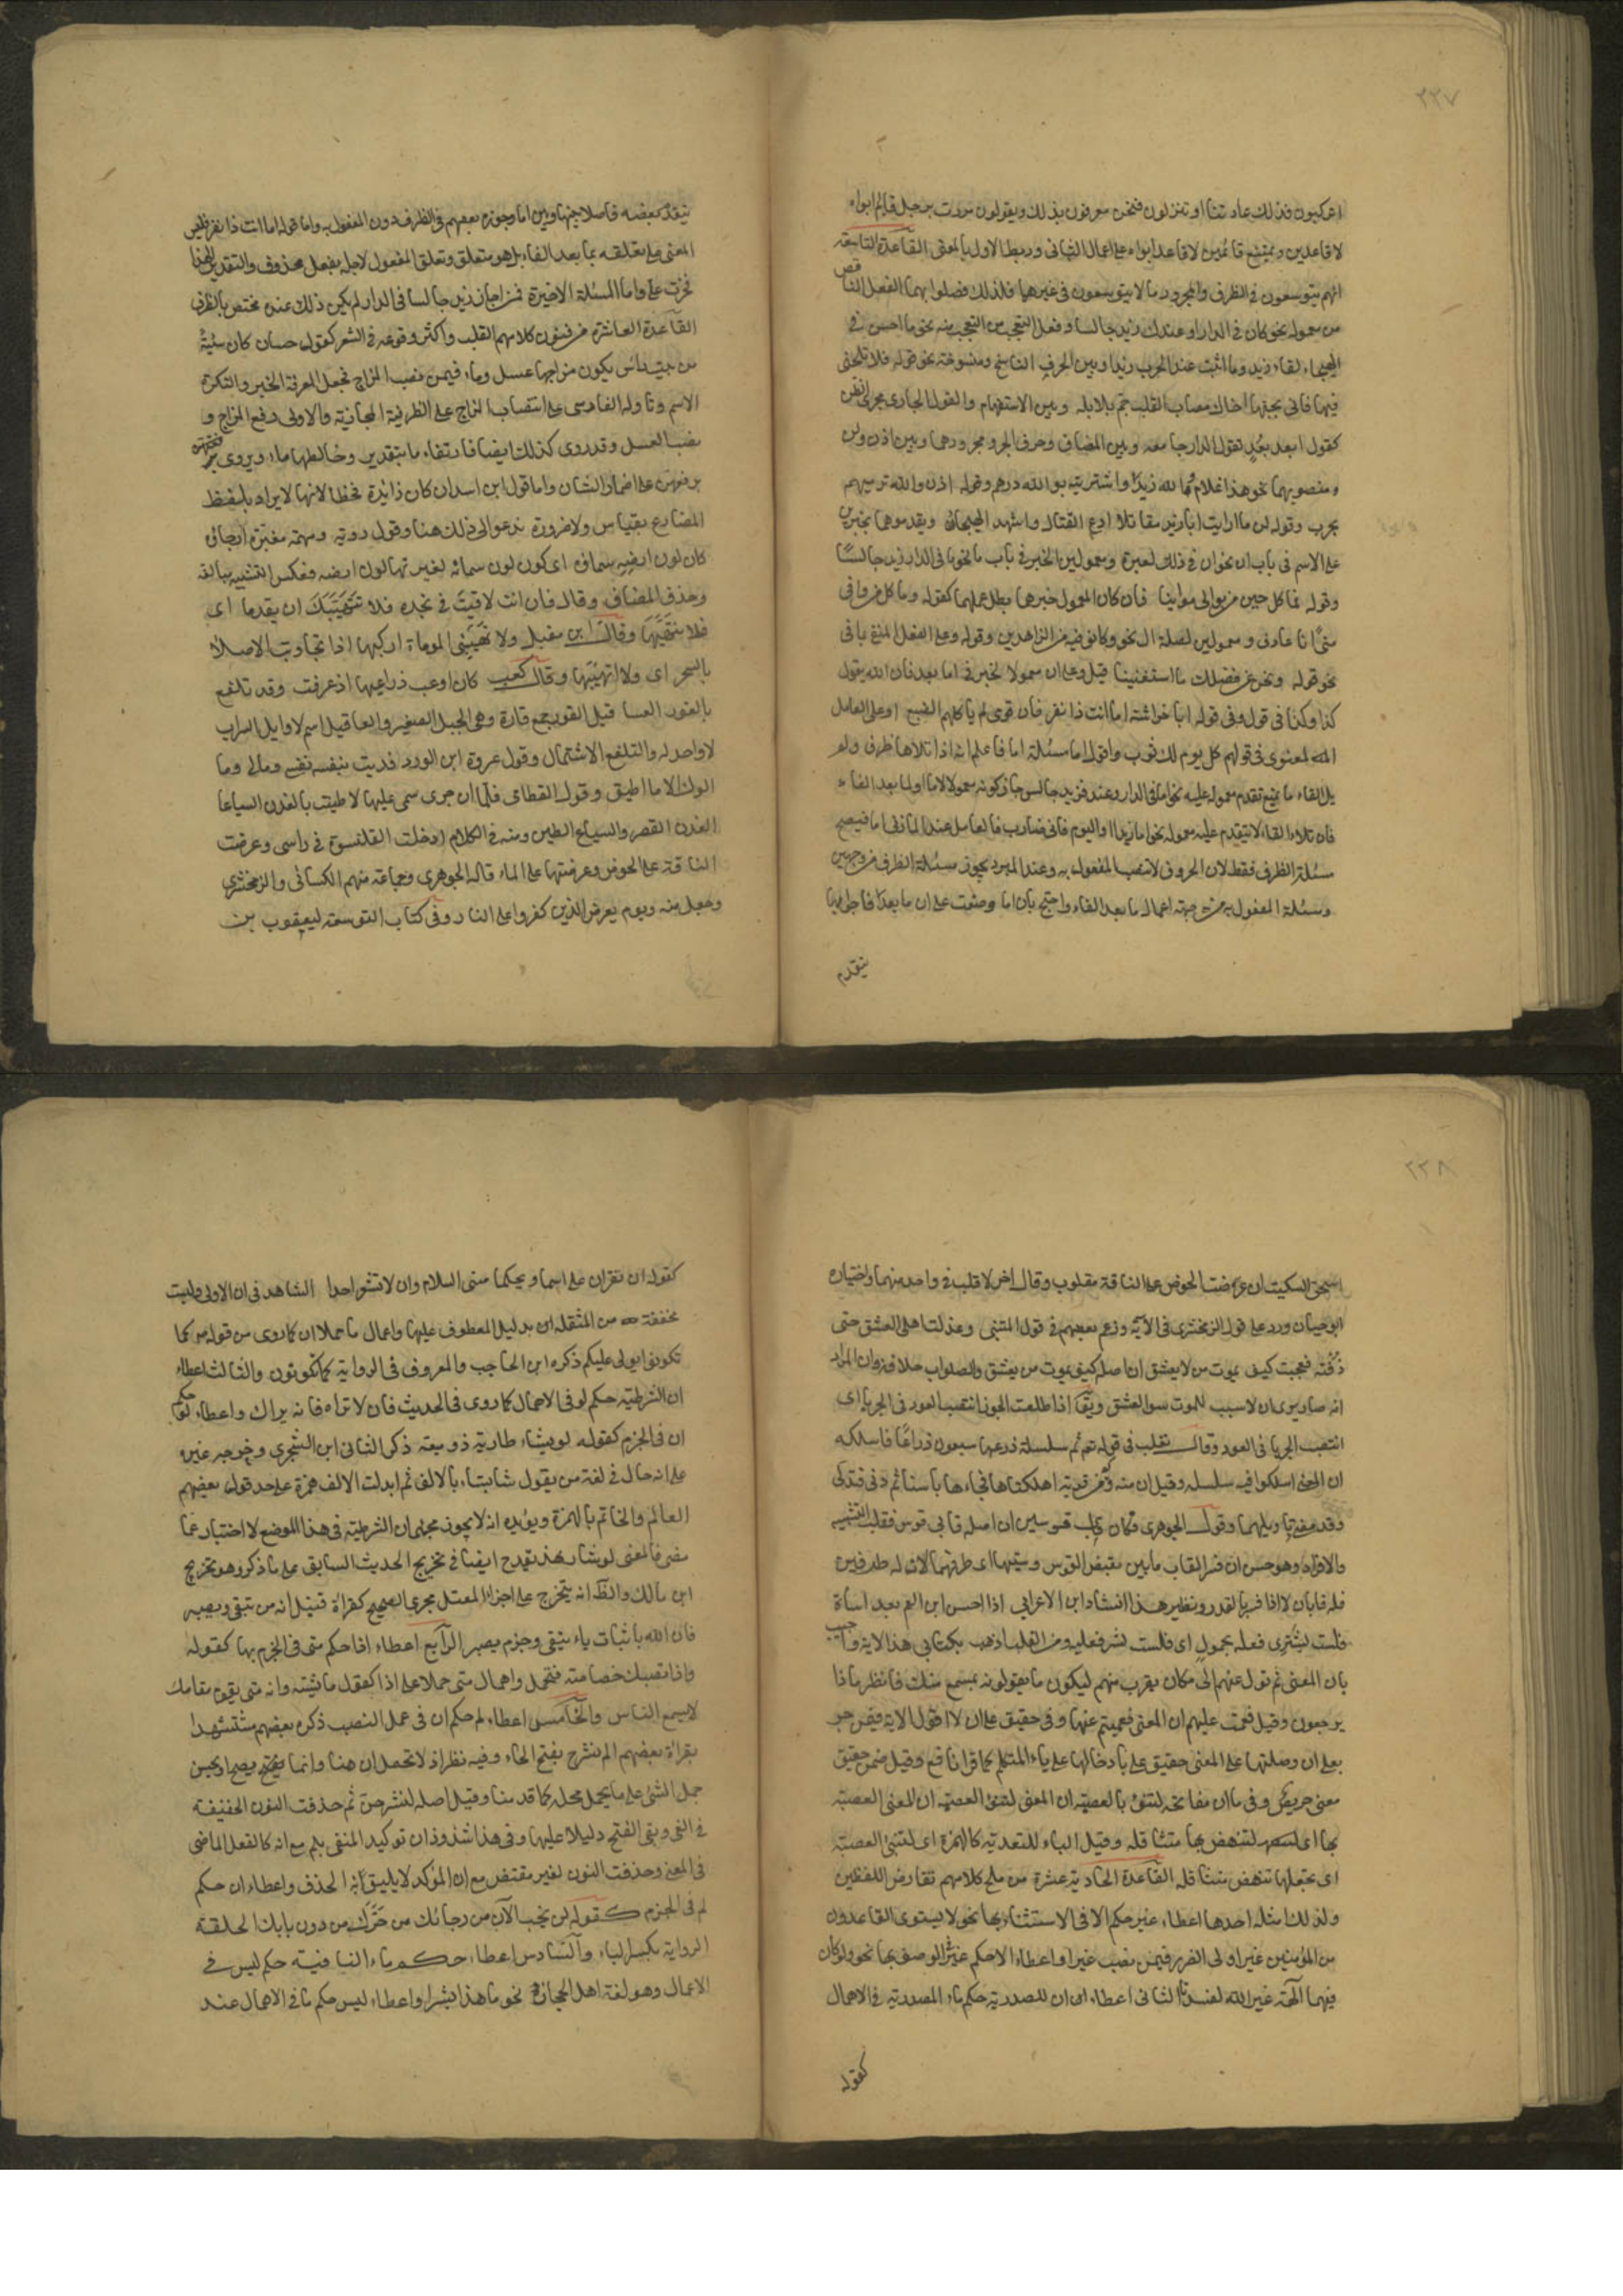 ٢٢٧
ان تركبون فذلك عادتنا او تنزلون فنحن معروفون بذلك ويقولون مررت برجل قائم ابواه
لا قاعدين ويمتنع قائمين لا قاعد ابواه على اعمال الثاني وربط الاول بالمعنى القاعدة التاسعة
انهم يتوسعون في الظرف والمجرور ما لا يتوسعون في غيرهما فلذلك فصلوا بهما الفعل الناقص
من معموله نحو كان في الدار او عندك زيد جالسا وفعل التعجب من المتعجب منه نحو ما احسن في
الهيجاء لقاء زيد وما اثبت عند الحرب زيدا وبين الحرف الناسخ ومنسوخه نحو قوله فلا تلحني
فيها فاني بحبها اخاك مصاب القلب جم بلابله وبين الاستفهام والقول الجاري مجرى الظن
كقوله ابعد بعد تقول الدار جامعة وبين المضاف وحرف الجر ومجرورهما وبين اذن ولن
ومنصوبهما نحو هذا غلام والله زيد واشتريته بو الله درهم وقوله اذن والله نرميهم
بحرب وقوله لن ما رايت ابا يزيد مقاتلا ادع القتال واشهد الهيجاء ويقدموهما خبرين
على الاسم في باب ان نحو ان في ذلك لعبرة ومعمولين للخبر في باب ما نحو ما في الدار زيد جالسا
وقوله فما كل حين من توالي مواليا فان كان المعمول غيرهما بطل عملها كقوله وما كل من وافى
منى انا عارف ومعمولين لصلة ال نحو وكانوا فيه من الزاهدين وقوله وعلى الفعل المنفي بما في
نحو قوله ونحن عن فضلك ما استغنينا قيل وعلى ان معمولا لخبرها في اما بعد فان الله يقول
كذا وكذا في قول وفي قوله ابا خراشة اما انت ذا نفر فان قومي لم ياكلهم الضبع او على العامل
المعنوي في قولهم كل يوم لك ثوب واقول اما مسئلة اما فاعلم انه اذا تلاها ظرف ولم
يل الفاء ما يمتنع تقدم معموله عليه نحو اما في الدار او عندك فزيد جالس جاز كونه معمولا لاما او لما بعد الفاء
فان تلا الفاء ما لا يتقدم عليه معموله نحو اما زيدا او اليوم فاني ضارب فالعامل عند المازني اما فتصح
مسئلة الظرف فقط لان الحروف لا تنصب المفعول به وعند المبرد يجوز مسئلة الظرف من وجهين
ومسئلة المفعول به من جهة اعمال ما بعد الفاء واحتج بان اما وضعت على ان ما بعد فاء جوابها
يتقدم
يتقدم بعضه فاصلا بينها وبين اما وجوزه بعضهم في الظرف دون المفعول به واما قوله اما انت ذا نفر فليس
المعنى على تعلقه بما بعد الفاء بل هو متعلق تعلق المفعول لاجله بفعل محذوف والتقدير الهذا
فخرت علي واما المسئلة الاخيرة فمن اجاز زيد جالسا في الدار لم يكن ذلك عنده مختص بالظرف
القاعدة العاشرة من فنون كلامهم القلب واكثر وقوعه في الشعر كقول حسان كان سبيئة
من بيت راس يكون مزاجها عسل وماء فيمن نصب المزاج فجعل المعرفة الخبر والنكرة
الاسم وتاوله الفارسي على انتصاب المزاج على الظرفية المجازية والاولى رفع المزاج و
نصب العسل وقد روي كذلك ايضا فارتفاع ماء بتقدير وخالطها ماء ويروى برفعهن
برفعهن على اضمار الشان واما قول ابن اسد ان كان زائدة فخطا لانها لا تزاد بلفظ
المضارع بقياس ولا ضرورة تدعو الى ذلك هنا وقول رؤبة ومهمه مغبرة ارجائه
كان لون ارضه سماؤه اي كان لون سمائه لغبرتها لون ارضه فعكس التشبيه مبالغة
وحذف المضاف وقال فان انت لاقيت في نجدة فلا تتهيبك ان تقدما اي
فلا تتهيبها وقال ابن مقبل ولا تهيبني الموماة اركبها اذا تجاوبت الاصداء
بالسحر اي ولا اتهيبها وقال كعب كان اوب ذراعيها اذا عرقت وقد تلفع
بالقور العسا قيل القور جمع قارة وهي الجبل الصغير والعساقيل اسم لاوايل السراب
لا واحد له والتلفع الاشتمال وقول عروة ابن الورد فديت بنفسه نفسي ومالي وما
الوك الا ما اطيق وقول القطامي فلما ان جرى سمن عليها كما طينت بالفدن السياعا
الفدن القصر والسياع الطين ومنه في الكلام ادخلت القلنسوة في راسي وعرضت
الناقة على الحوض وعرضتها على الماء قاله الجوهري وجماعة منهم الكسائي والزمخشري
وجعل منه ويوم يعرض الذين كفروا على النار وفي كتاب التوسعة ليعقوب بن
٢٢٨
اسحق السكيت ان عرضت الحوض على الناقة مقلوب وقال اخر لا قلب في واحد منهما واختياره
ابو حيان ورد على قول الزمخشري في الآية وزعم بعضهم في قول المتنبي وعذلت اهل العشق حتى
ذقته فعجبت كيف يموت من لا يعشق ان اصله كيف لا يموت من يعشق والصواب خلافه وان المراد
انه صار يرى ان لا سبب للموت سوى العشق ويقال اذا طلعت الجوزا انتصب العود في الحربا اي
انتصب الحربا في العود وقال ثعلب في قوله تع ثم في سلسلة ذرعها سبعون ذراعا فاسلكه
ان المعنى اسلكوا فيه سلسلة وقيل ان منه وكم من قرية اهلكناها فجاءها باسنا ثم دنى فتدلى
وقد مضى تاويلهما وقول الجوهري فكان قاب قوسين ان اصله قابي قوس فقلب التثنية
والافراد وهو حسن ان فسر القاب ما بين مقبض القوس وسيتها اي طرفها لان له طرفين
فله قابان لا اذا فسر بالقدر ونظير هذا انشاد ابن الاعرابي اذا احسن ابن العم بعد اساءة
فلست لشري فعله بحمول اي فلست لشر فعليه ومن القلب اذهب بكتابي هذا الاية واجيب
بان المعنى ثم تول عنهم الى مكان يقرب منهم ليكون ما يقولونه بمسمع منك فانظر ماذا
يرجعون وقيل فعميت عليهم ان المعنى فعميتم عنها وفي حقيق على ان لا اقول الاية فيمن جر
بعلى ان وصلتها على المعنى حقيق علي بادخالها على ياء المتكلم كما قرا نافع وقيل ضمن حقيق
معنى حريص وفي ما ان مفاتحه لتنوء بالعصبة ان المعنى لتنوء العصبة
بها اي لتنهض بها متثاقلة وقيل الباء للتعدية كالهمزة اي لتنيئ العصبة
اي تجعلها تنهض متثاقلة القاعدة الحادية عشرة من ملح كلامهم تقارض اللفظين
ولذلك امثلة احدها اعطاء غير حكم الا في الاستثناء بها نحو لا يستوي القاعدون
من المؤمنين غير اولى الضرر فيمن نصب غير واعطاء الا حكم غير في الوصف بها نحو لو كان
فيهما آلهة غير الله لفسدتا الثاني اعطاء ان المصدرية حكم ما المصدرية في الاهمال
كقوله
كقوله ان تقران على اسما ويحكما مني السلام وان لا تشعرا احدا الشاهد في ان الاولى وليست
مخففة من المثقلة بدليل المعطوف عليها واعمال ما حملا ان كما روي من قوله ص كما
تكونوا يولى عليكم ذكره ابن الحاجب والمعروف في الرواية كما تكونون والثالث اعطاء
ان الشرطية حكم لو في الاهمال كما روي في الحديث فان لا تراه فانه يراك واعطاء لو حكم
ان في الجزم كقوله لو يشاء طار به ذو ميعة ذكر الثاني ابن الشجري وخرجه غيره
على انه جاء في لغة من يقول شا يشاء بالالف ثم ابدلت الالف همزة على حد قول بعضهم
العالم والخاتم بالهمزة ويؤيده انه لا يجوز مجيء ان الشرطية في هذا الموضع لا اخبار عما
مضى فالمعنى لو شاء بهذا يقدح ايضا في تخريج الحديث السابق على ما ذكر وهو تخريج
ابن مالك والظ انه يتخرج على اجراء المعتل مجرى الصحيح كقراة قنبل انه من يتقي ويصبر
فان الله باثبات ياء يتقي وجزم يصبر الرابع اعطاء اذا حكم متى في الجزم بها كقوله
واذا تصبك خصاصة فتحمل واهمال متى حملا على اذا كقول عايشة وانه متى يقوم مقامك
لا يسمع الناس والخامس اعطاء لم حكم ان في عمل النصب ذكره بعضهم مستشهدا
بقراة بعضهم الم نشرح بفتح الحاء وفيه نظر اذ لا تحل لن هنا وانما يصح او يحسن
حمل الشئ على ما يحل محله كما قدمنا وقيل اصله لنشرحن ثم حذفت النون الخفيفة
في النفي وبقي الفتح دليلا عليها وفي هذا شذوذان توكيد المنفي بلم مع انه كالفعل الماضي
في المعنى وحذفت النون لغير مقتض مع ان المؤكد لا يليق به الحذف واعطاء لن حكم
لم في الجزم كقوله لن يخب الآن من رجائك من حرك من دون بابك الحلقة
الرواية بكسر الباء والسادس اعطاء حكم ماء النافية حكم ليس في
الاعمال وهو لغة اهل الحجاز نحو ما هذا بشرا واعطاء ليس حكم ما في الاهمال عند